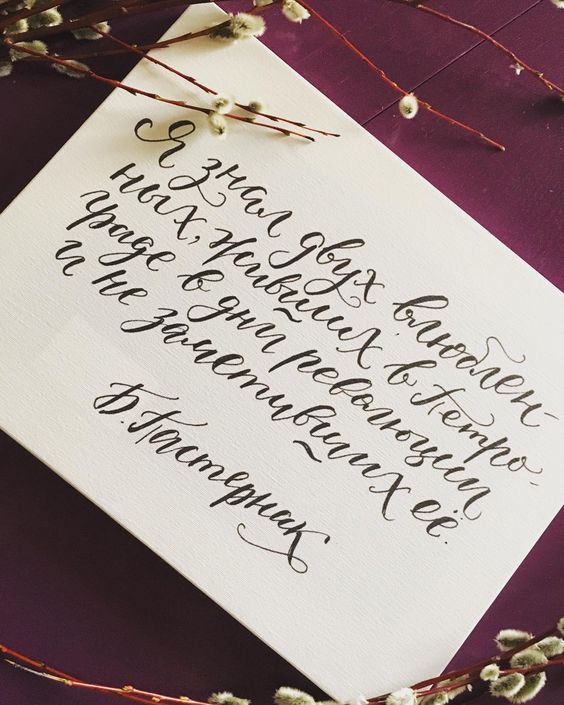 Я знал двух влюблен-
ных, живших в Петро-
граде в дни революции
и не заметивших её.
Б. Пастернак